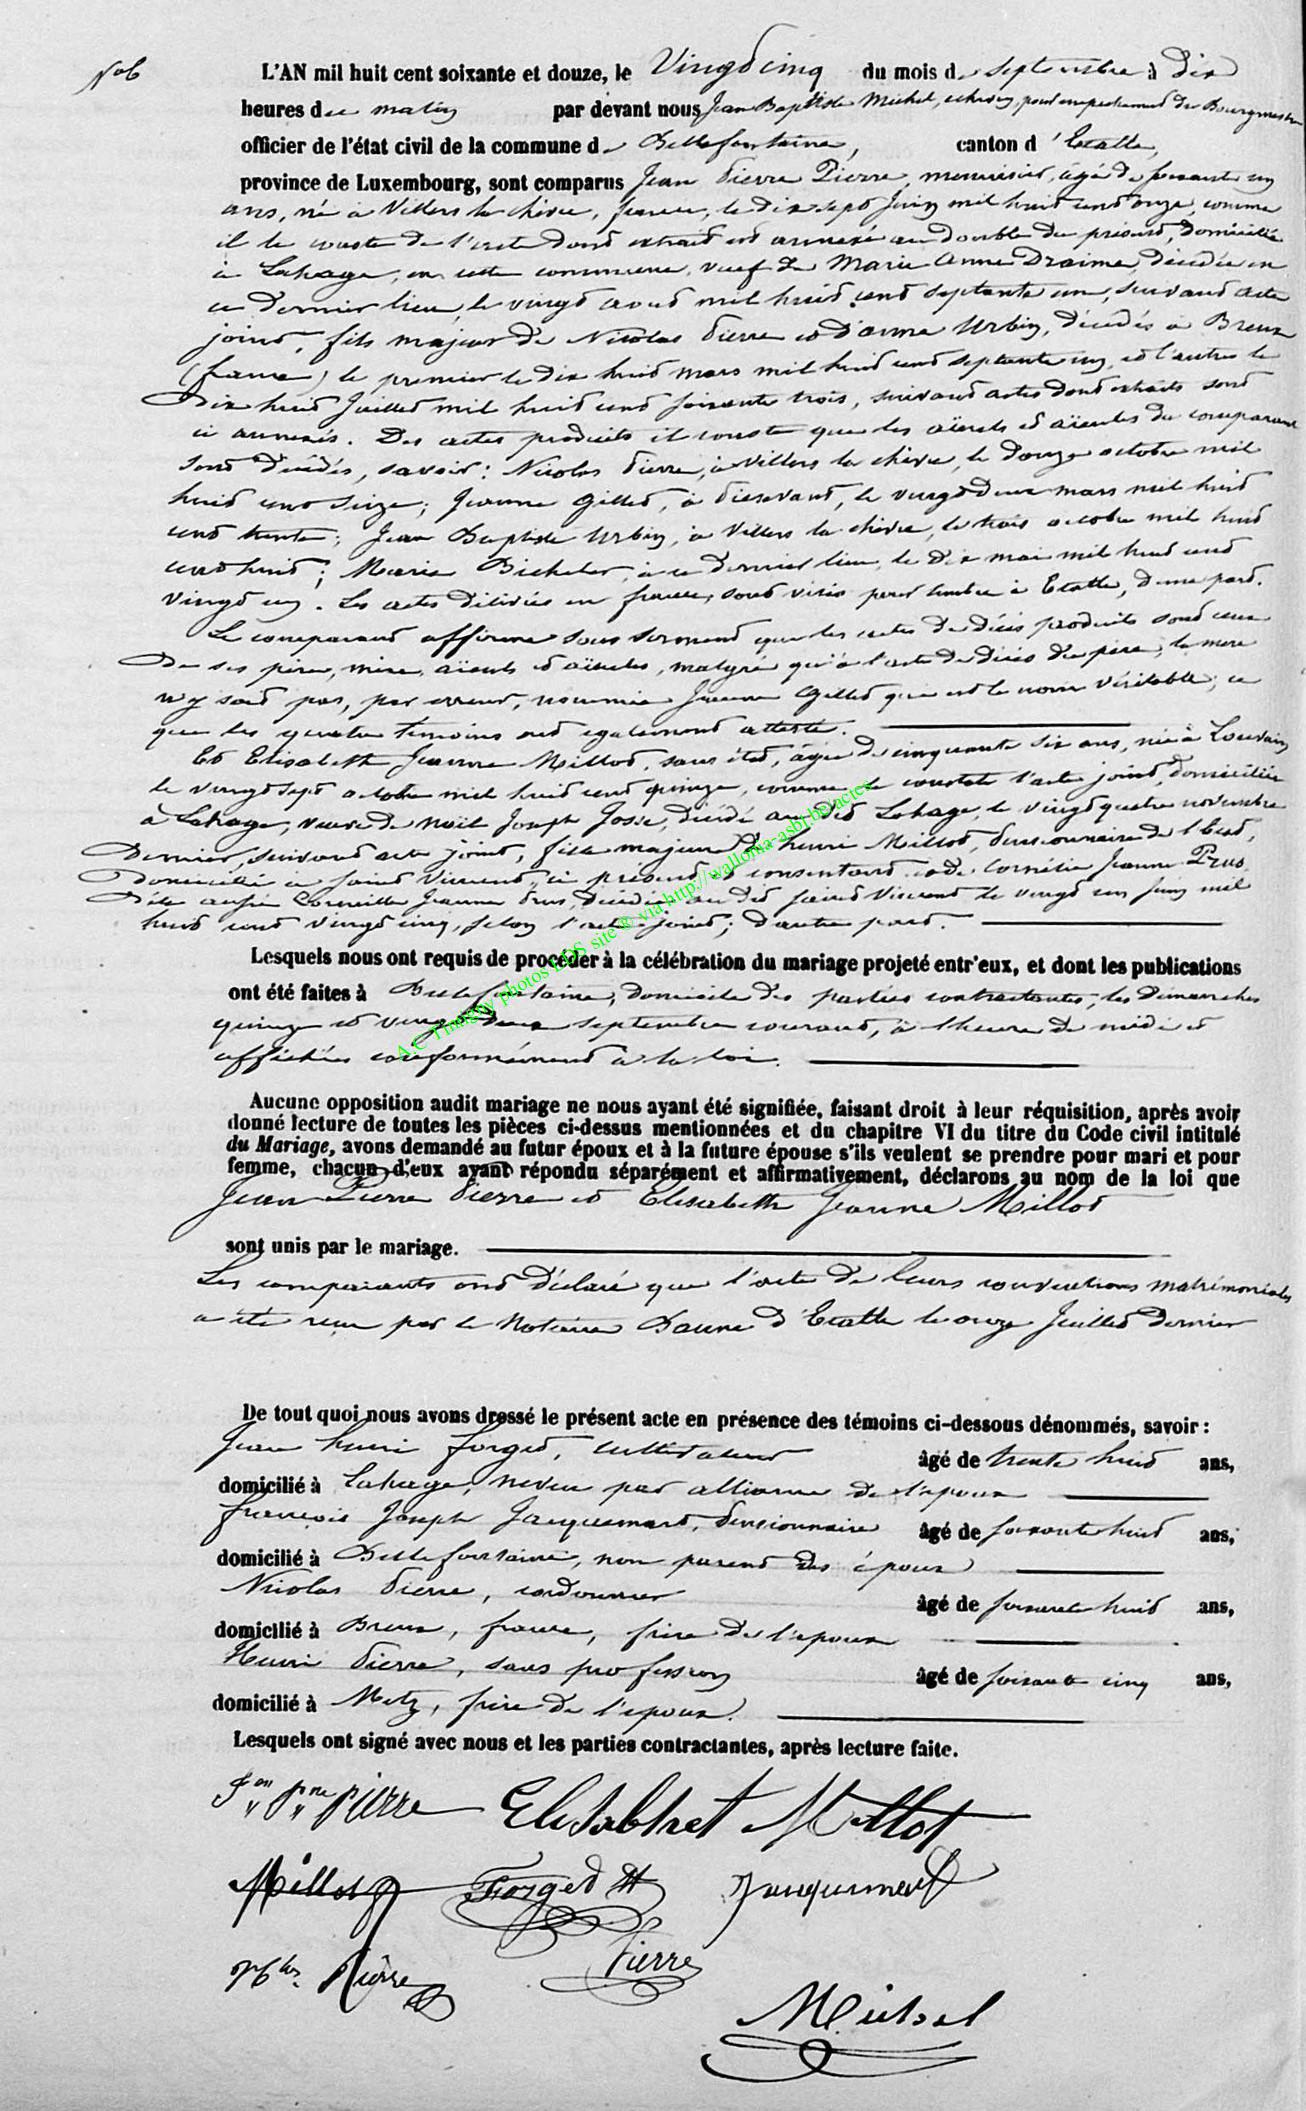 N° 6
L'AN mil huit cent soixante et douze, le Vingt cinq du mois de septembre à dix
heures du matin par devant nous Jean Baptiste Michel, échevin, pour empêchement du Bourgmestre
officier de l'état civil de la commune de Bellefontaine, canton d'Etalle,
province de Luxembourg, sont comparus Jean Pierre Pierre, menuisier, âgé de soixante un
ans, né à Villers la chèvre, france, le dix sept Juin mil huit cent onze, comme
il le conste de l'acte dont extrait est annexé au double du présent, domicilié
à Lahage, en cette commune, veuf de Marie Anne Draime, décédée en
ce dernier lieu, le vingt aout mil huit cent septante un, suivant acte
joint, fils majeur de Nicolas Pierre et d'anne Urbin, décédés à Breux
(france) le premier le dix huit mars mil huit cent septante un, et l'autre le
dix huit Juillet mil huit cent soixante trois, suivant actes dont extraits sont
ci annexés. Des actes produits il conste que les aïeuls et aïeules du comparant
sont décédés, savoir : Nicolas Pierre, à Villers la chèvre, le douze octobre mil
huit cent seize ; Jeanne Gillet, à le vingt deux mars mil huit
cent trente ; Jean Baptiste Urbin, à Villers la chèvre, le trois octobre mil huit
cent huit ; Marie à ce dernier lieu, le dix mai mil huit cent
vingt un. Les actes délivrés en france, sont visés pour timbre à Etalle, d'une part.
Le comparant affirme sous serment que les actes de décès produits sont ceux
de ses père, mère, aïeuls et aïeules, malgré qu'à l'acte de décès du père, la mère
n'y soit pas, par erreur, nommée Jeanne Gillet qui est le nom véritable ; ce
que les quatre témoins ont également attesté.
Et Elisabeth Jeanne Millot, sans état, âgée de cinquante six ans, née à Louvain
le vingt sept octobre mil huit cent quinze, comme le constate l'acte joint, domiciliée
à Lahage, veuve de Noël Joseph Josse, décédé au dit Lahage, le vingt quatre novembre
dernier, suivant acte joint, fille majeure de henri Millot, pensionnaire de l'Etat,
domicilié à Saint Vincent, ci présent et consentant et de Cornélie Jeanne Prus
dite aussi Corneille Jeanne Prus, décédée au dit Saint Vincent le vingt un Juin mil
huit cent vingt cinq, selon l'acte joint ; d'autre part.
Lesquels nous ont requis de procéder à la célébration du mariage projeté entr'eux, et dont les publications
ont été faites à Bellefontaine, domicile des parties contractantes, les dimanches
quinze et vingt deux septembre courant, à l'heure de midi et
affichées conformément à la loi.
Aucune opposition audit mariage ne nous ayant été signifiée, faisant droit à leur réquisition, après avoir
donné lecture de toutes les pièces ci-dessus mentionnées et du chapitre VI du titre du Code civil intitulé
du Mariage, avons demandé au futur époux et à la future épouse s'ils veulent se prendre pour mari et pour
femme, chacun d'eux ayant répondu séparément et affirmativement, déclarons au nom de la loi que
Jean Pierre Pierre et Elisabeth Jeanne Millot
sont unis par le mariage.
Les comparants ont déclaré que l'acte de leurs conventions matrimoniales
a été reçu par le Notaire d'Etalle le onze Juillet dernier
De tout quoi nous avons dressé le présent acte en présence des témoins ci-dessous dénommés, savoir :
Jean henri forget, cultivateur âgé de trente huit ans,
domicilié à Lahage, neveu par alliance de l'époux
françois Joseph Jacquemart, pensionnaire âgé de soixante huit ans,
domicilié à Bellefontaine, non parent des époux
Nicolas Pierre, cordonnier âgé de soixante huit ans,
domicilié à Breux, france, frère de l'époux
Henri Pierre, sans profession âgé de soixante cinq ans,
domicilié à Metz, frère de l'époux.
Lesquels ont signé avec nous et les parties contractantes, après lecture faite.
Jean Prre pierre Elisabhet Millot
Millot Forget H Jacquemart
Nlas Pierre Pierre
Michel
A.C Tintigny photos LDS site © via http://wallonia-asbl.be/actes